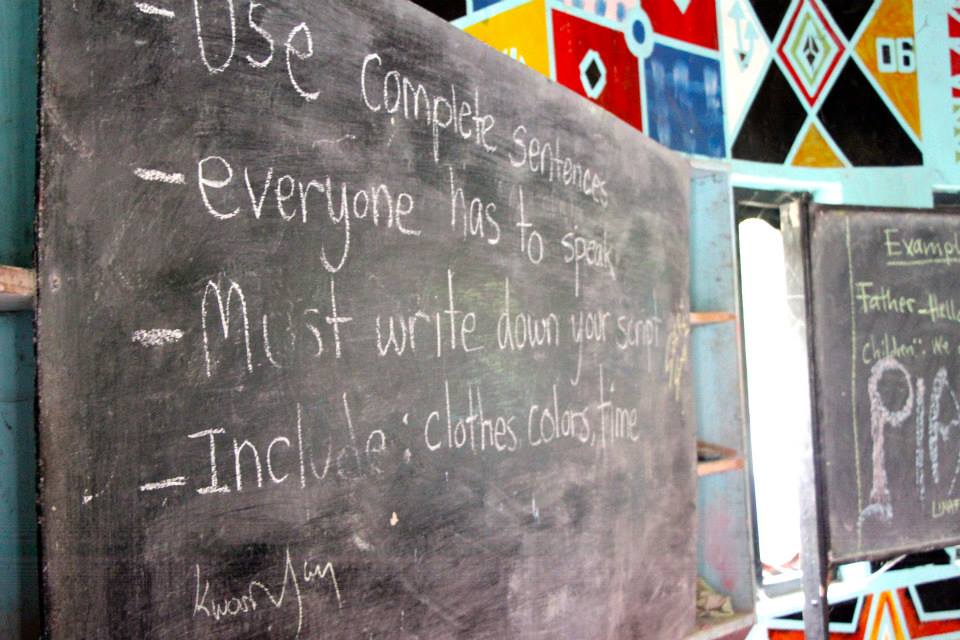 - Use complete sentences
- everyone has to speak
- Must write down your script
- Include: clothes, colors, time
06
Father - Hello
Children: